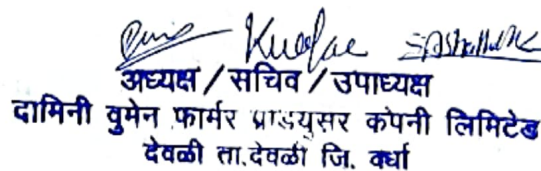 अध्यक्ष / सचिव / उपाध्यक्ष
दामिनी वुमेन फार्मर प्राडयुसर कंपनी लिमिटेड
देवळी ता.देवळी जि. वर्धा